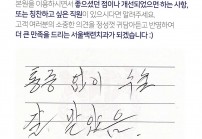 본원을 이용하시면서 좋으셨던 점이나 개선되었으면 하는 사항,
또는 칭찬하고 싶은 직원이 있으시다면 알려주세요.
고객 여러분의 소중한 의견을 정성껏 귀담아듣고 반영하여
더 큰 만족을 드리는 서울백련치과가 되겠습니다:)
통증 없이 수술
잘 받았음.